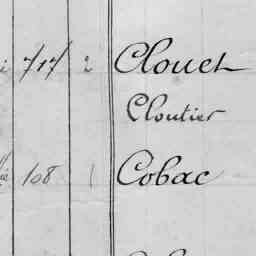 717 2 Clouet
Cloutier
108 1 Cobac